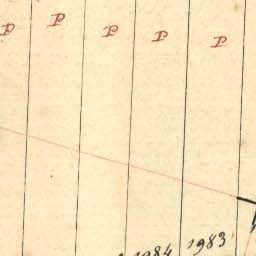 P P P P P
1984 1983